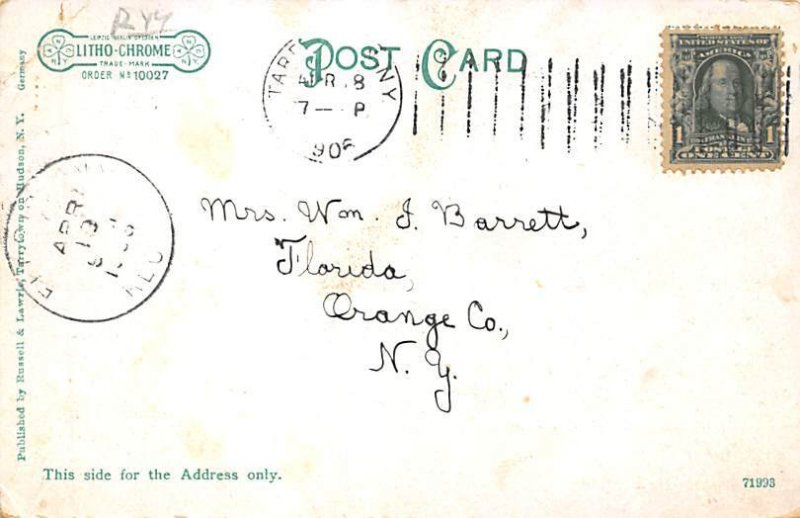 RYY
LEIPZIG BERLIN DRESDEN
LITHO-CHROME
TRADE MARK
ORDER Nº 10027
POST CARD
NY
APR 8
7— P
1906
UNITED STATES OF
AMERICA
1 1
ONE CENT
APR
REC'D
Mrs. Wm. J. Barrett,
Florida,
Orange Co.,
N. Y.
Published by Russell & Lawrie, Tarrytown on Hudson, N. Y. Germany
This side for the Address only.
71993